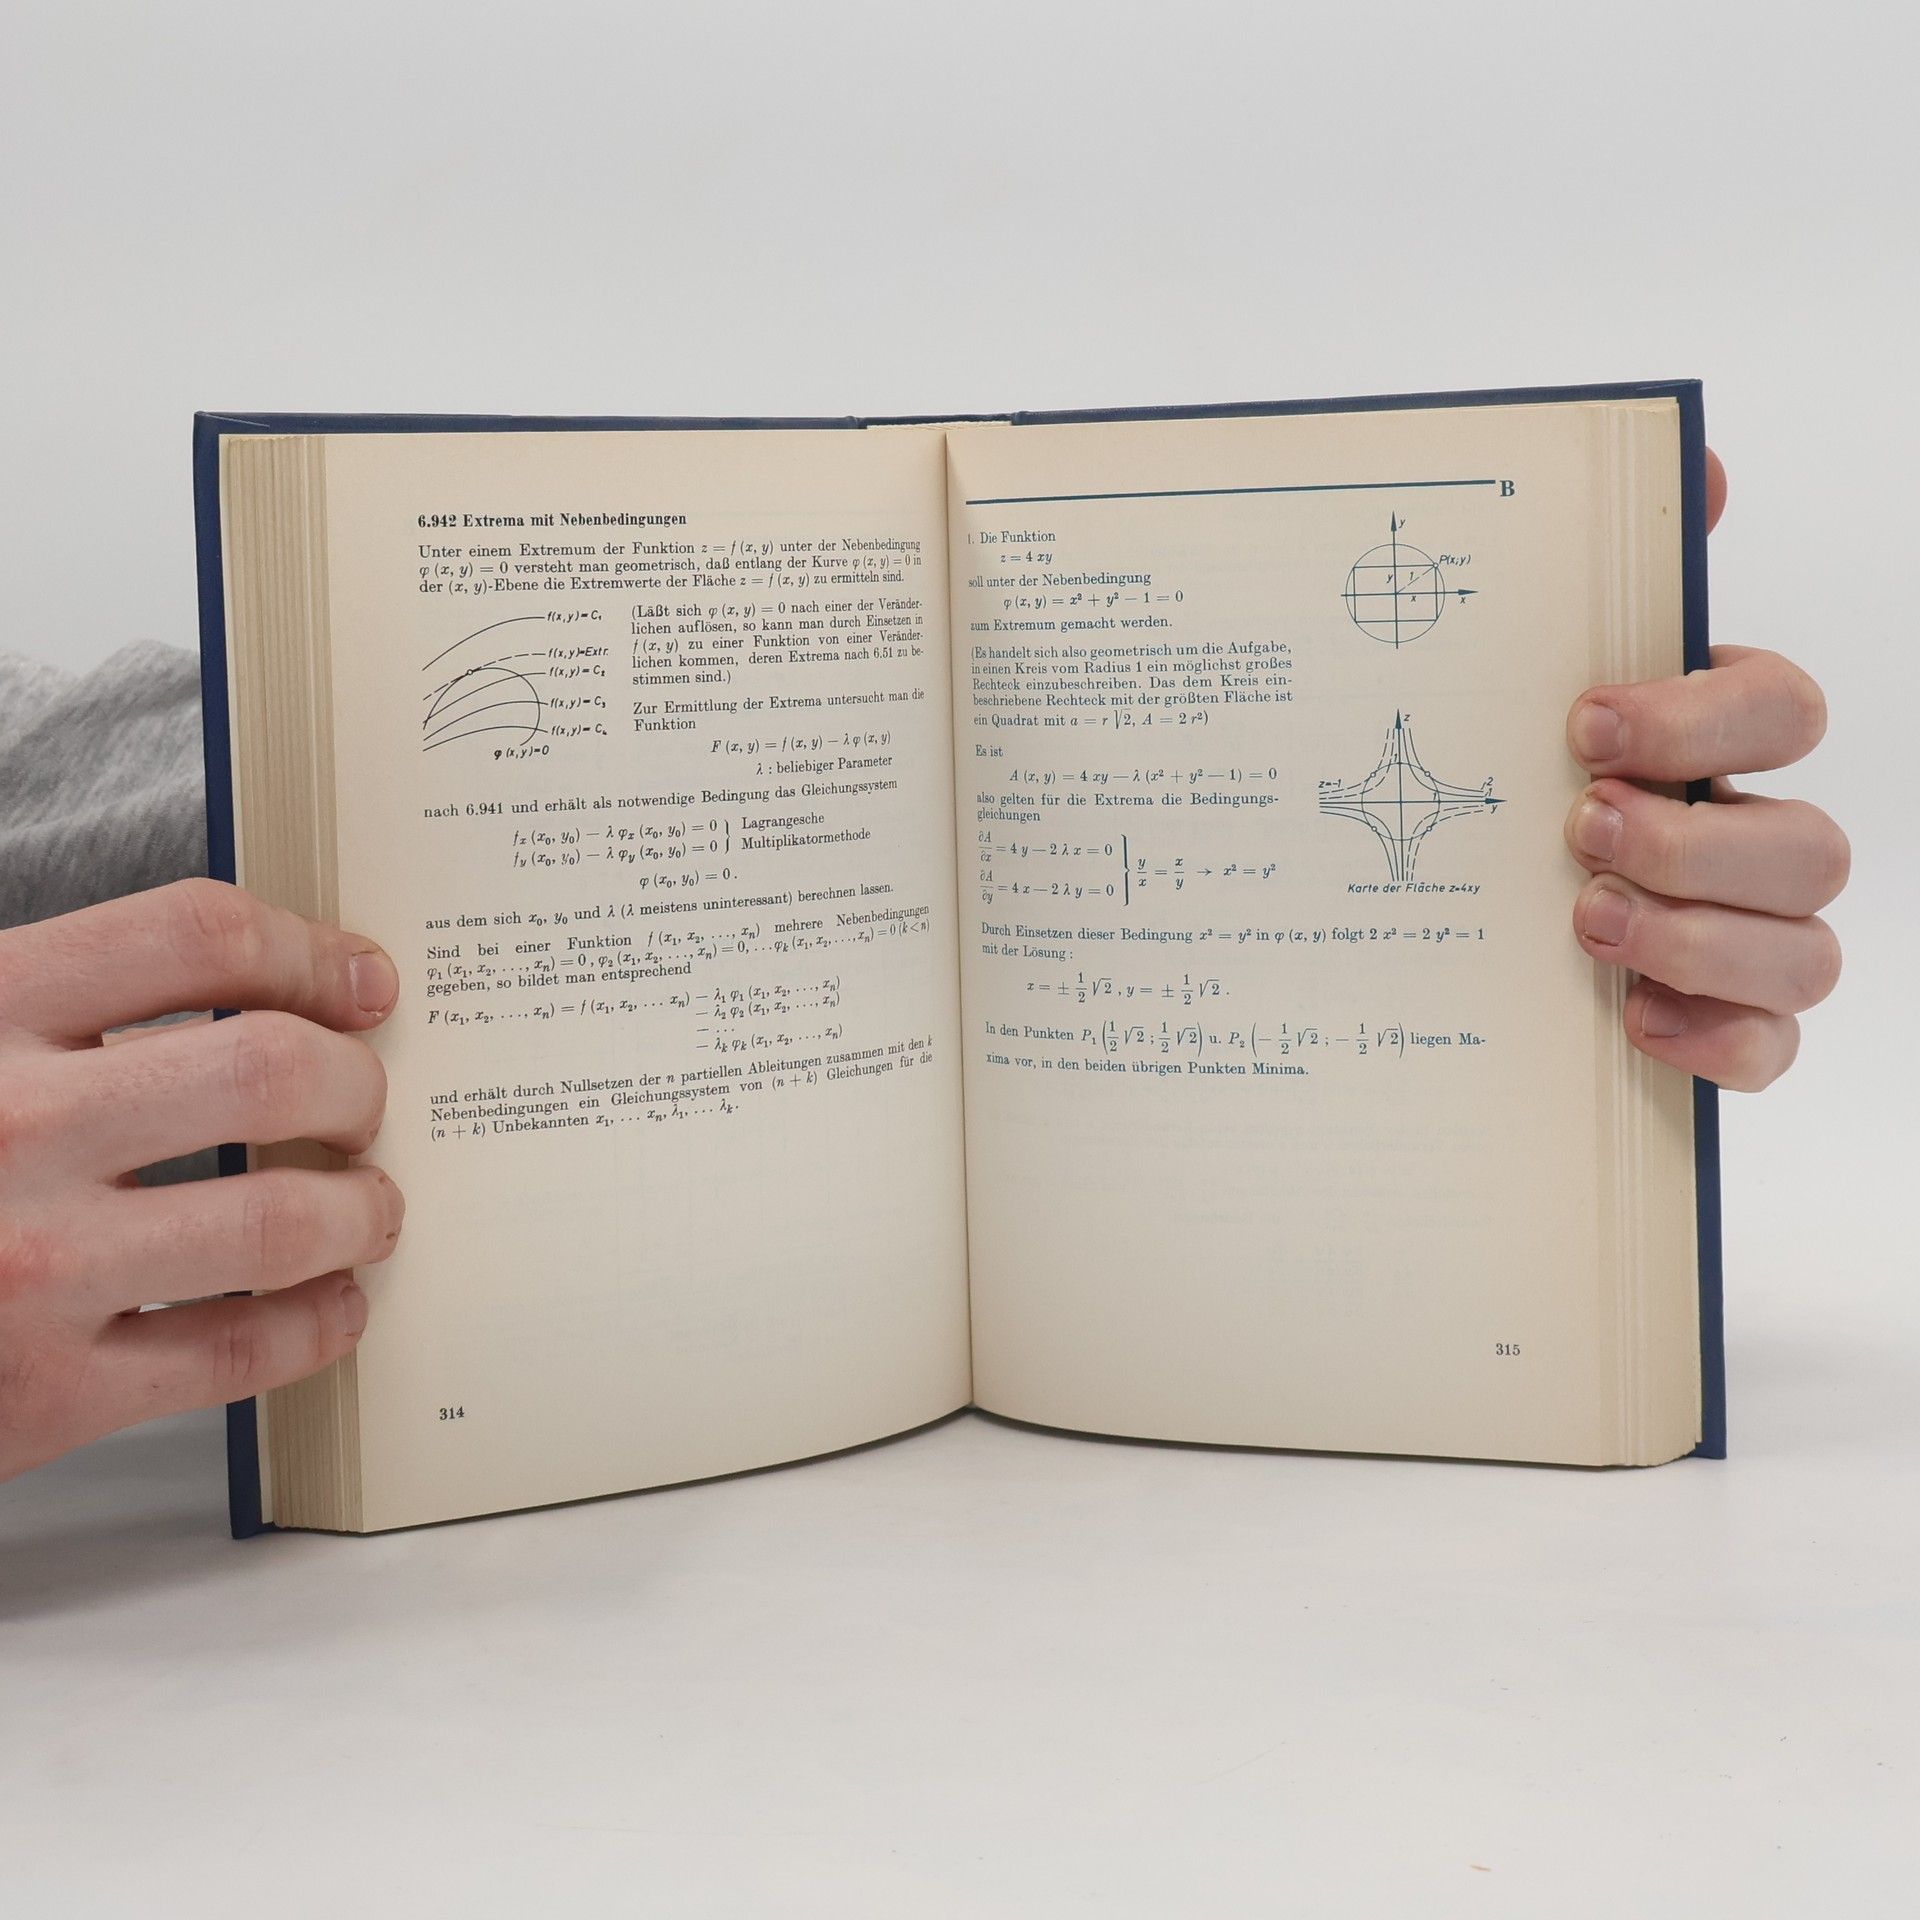 6.942 Extrema mit Nebenbedingungen
Unter einem Extremum der Funktion z = f (x, y) unter der Nebenbedingung
φ (x, y) = 0 versteht man geometrisch, daß entlang der Kurve φ (x, y) = 0 in
der (x, y)-Ebene die Extremwerte der Fläche z = f (x, y) zu ermitteln sind.
f(x,y)=C₁
f(x,y)=Extr.
f(x,y)=C₂
f(x,y)=C₃
f(x,y)=C₄
φ(x,y)=0
(Läßt sich φ (x, y) = 0 nach einer der Veränder-
lichen auflösen, so kann man durch Einsetzen in
f (x, y) zu einer Funktion von einer Veränder-
lichen kommen, deren Extrema nach 6.51 zu be-
stimmen sind.)
Zur Ermittlung der Extrema untersucht man die
Funktion
F (x, y) = f (x, y) — λ φ (x, y)
λ : beliebiger Parameter
nach 6.941 und erhält als notwendige Bedingung das Gleichungssystem
fₓ (x₀, y₀) — λ φₓ (x₀, y₀) = 0 } Lagrangesche
f_y (x₀, y₀) — λ φ_y (x₀, y₀) = 0 } Multiplikatormethode
φ (x₀, y₀) = 0 .
aus dem sich x₀, y₀ und λ (λ meistens uninteressant) berechnen lassen.
Sind bei einer Funktion f (x₁, x₂, ..., xₙ) mehrere Nebenbedingungen
φ₁ (x₁, x₂, ..., xₙ) = 0 , φ₂ (x₁, x₂, ..., xₙ) = 0, ... φₖ (x₁, x₂, ..., xₙ) = 0 (k < n)
gegeben, so bildet man entsprechend
F (x₁, x₂, ..., xₙ) = f (x₁, x₂, ... xₙ) — λ₁ φ₁ (x₁, x₂, ..., xₙ)
— λ₂ φ₂ (x₁, x₂, ..., xₙ)
— ...
— λₖ φₖ (x₁, x₂, ..., xₙ)
und erhält durch Nullsetzen der n partiellen Ableitungen zusammen mit den k
Nebenbedingungen ein Gleichungssystem von (n + k) Gleichungen für die
(n + k) Unbekannten x₁, ... xₙ, λ₁, ... λₖ.
314
B
1. Die Funktion
z = 4 xy
soll unter der Nebenbedingung
φ (x, y) = x² + y² — 1 = 0
zum Extremum gemacht werden.
y
P(x;y)
y
1
x
x
(Es handelt sich also geometrisch um die Aufgabe,
in einen Kreis vom Radius 1 ein möglichst großes
Rechteck einzubeschreiben. Das dem Kreis ein-
beschriebene Rechteck mit der größten Fläche ist
ein Quadrat mit a = r √2, A = 2 r²)
Es ist
A (x, y) = 4 xy — λ (x² + y² — 1) = 0
also gelten für die Extrema die Bedingungs-
gleichungen
∂A/∂x = 4 y — 2 λ x = 0
∂A/∂y = 4 x — 2 λ y = 0
} y/x = x/y → x² = y²
z
z=-1
1
1
2
1
y
Karte der Fläche z=4xy
Durch Einsetzen dieser Bedingung x² = y² in φ (x, y) folgt 2 x² = 2 y² = 1
mit der Lösung :
x = ± 1/2 √2 , y = ± 1/2 √2 .
In den Punkten P₁ (1/2 √2 ; 1/2 √2) u. P₂ (— 1/2 √2 ; — 1/2 √2) liegen Ma-
xima vor, in den beiden übrigen Punkten Minima.
315